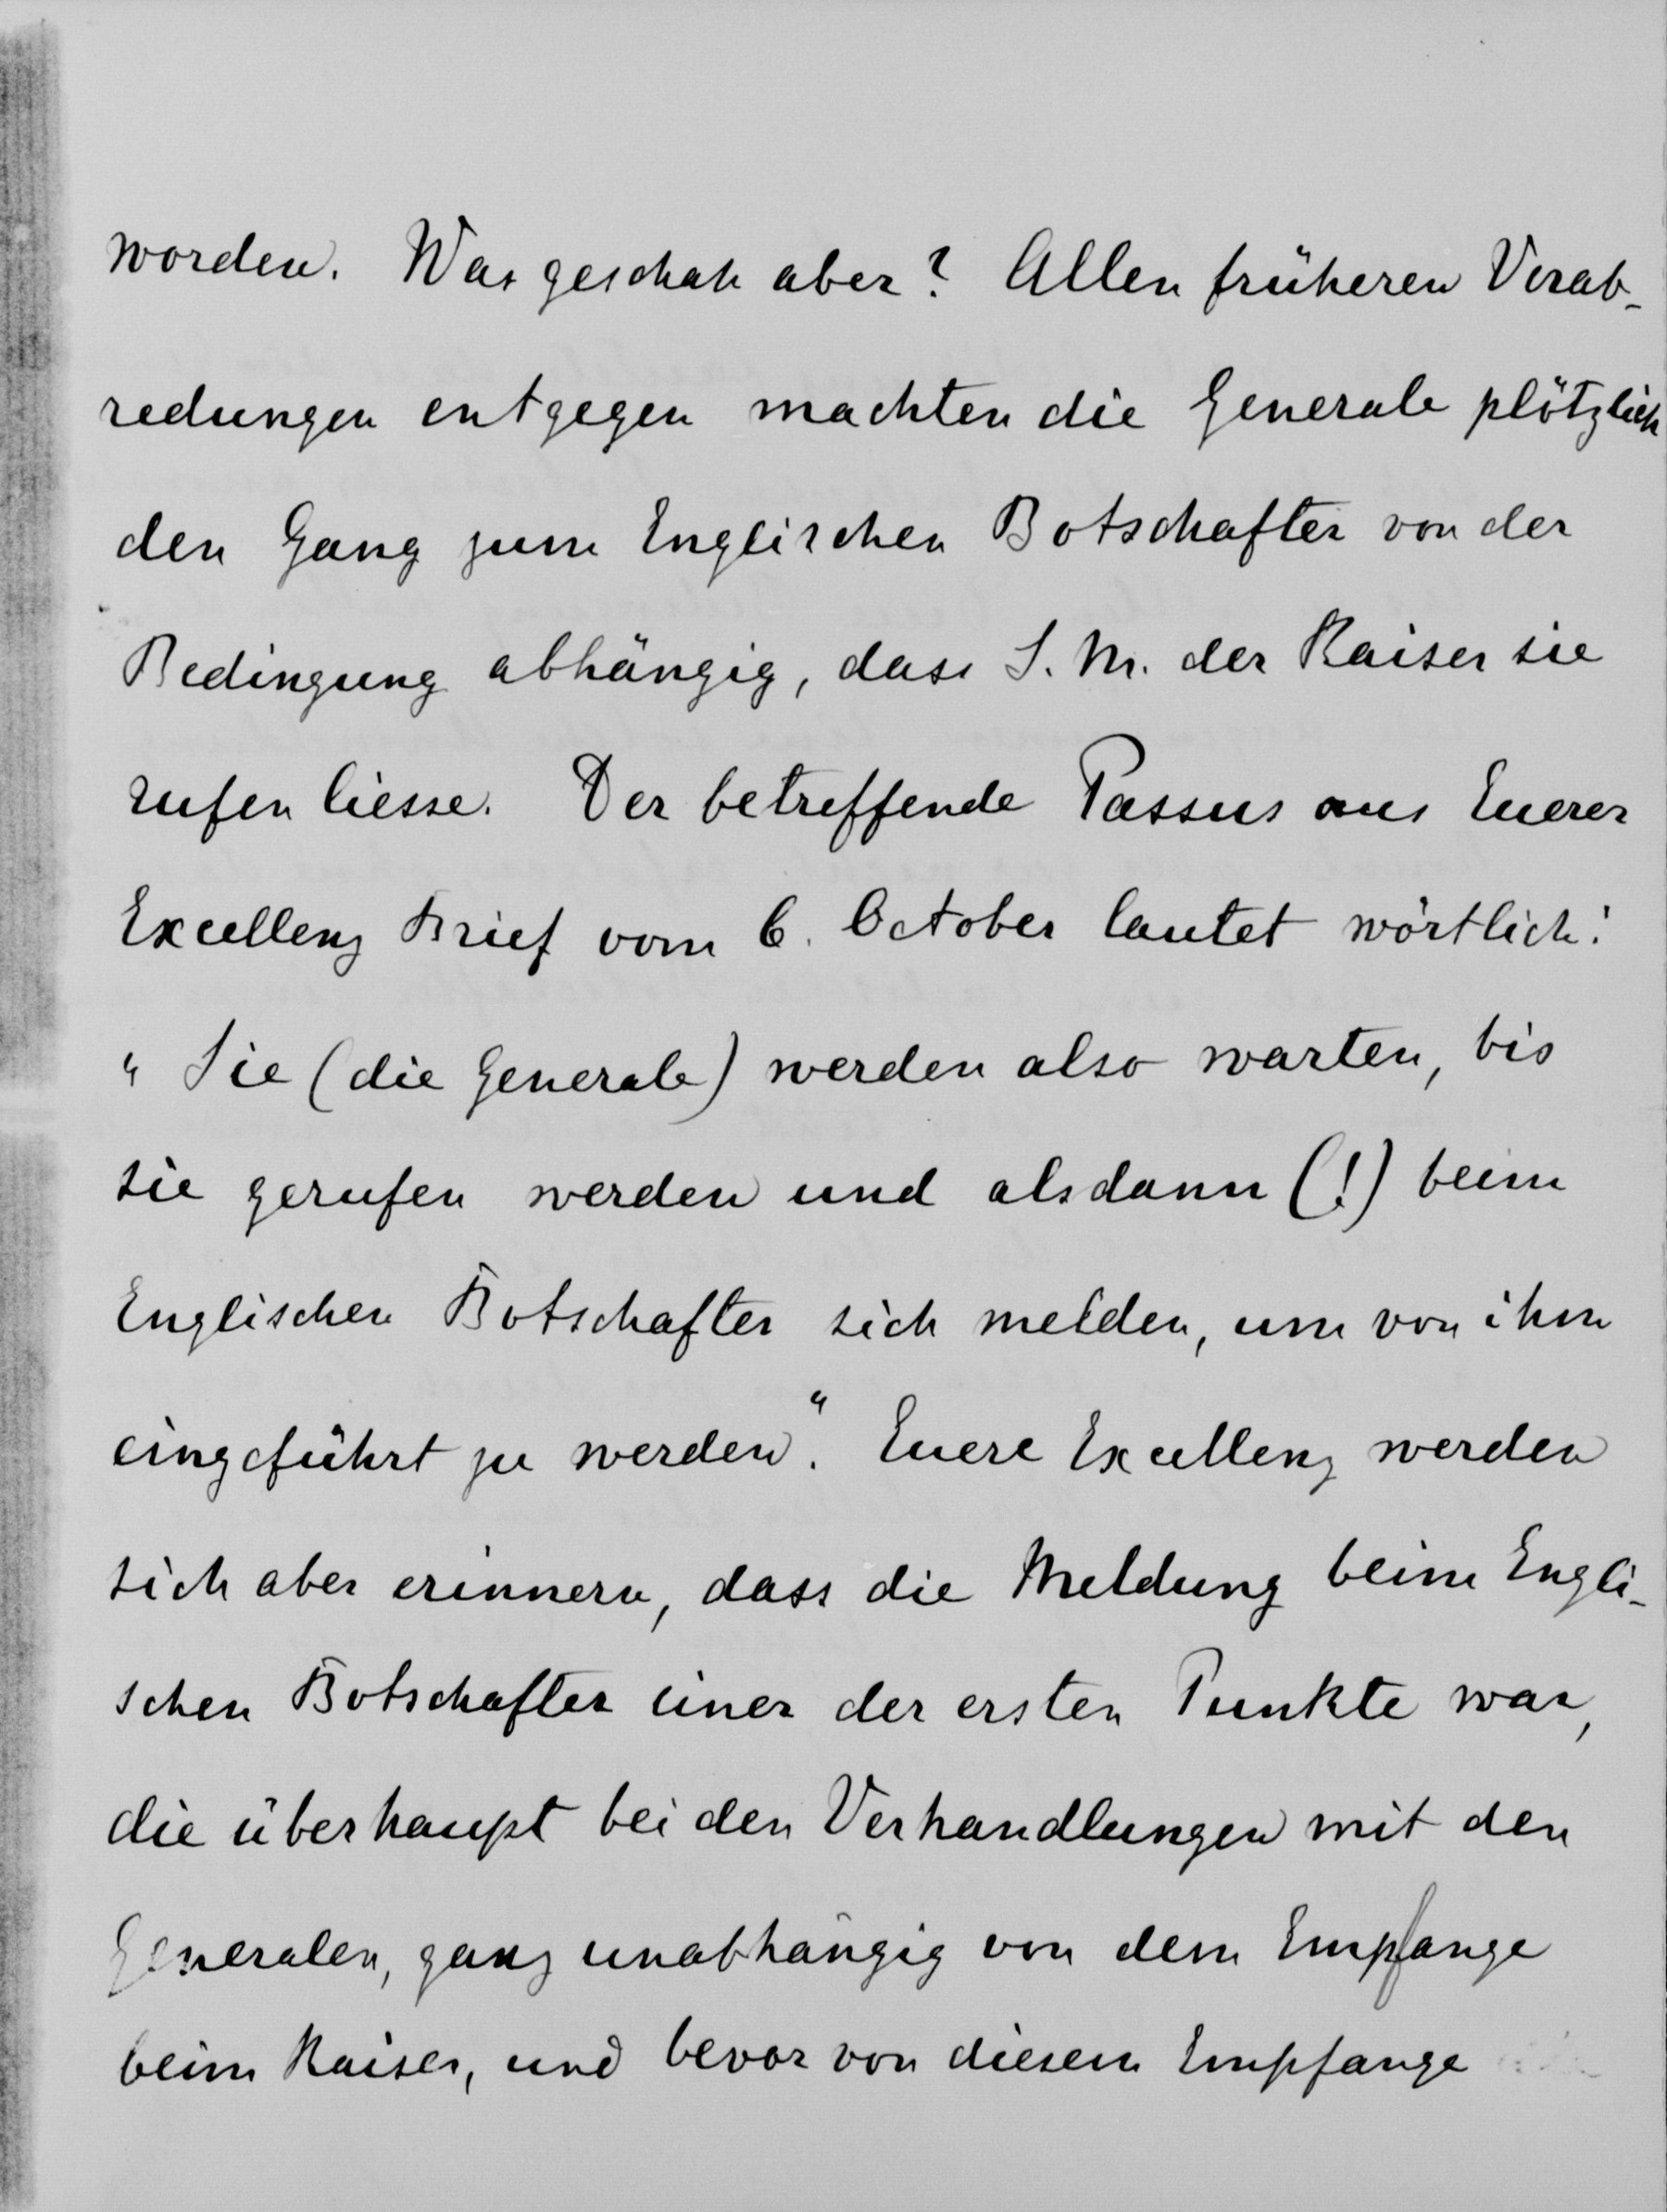 worden. Was geschah aber? Allen früheren Verab-
redungen entgegen machten die Generale plötzlich
den Gang zum Englischen Botschafter von der
Bedingung abhängig, dass S. M. der Kaiser sie
rufen liesse. Der betreffende Passus aus Euerer
Excellenz Brief vom 6. October lautet wörtlich:
"Sie (die Generale) werden also warten, bis
sie gerufen werden und alsdann (!) beim
Englischen Botschafter sich melden, um von ihm
eingeführt zu werden". Euere Excellenz werden
sich aber erinnern, dass die Meldung beim Engli-
schen Botschafter einer der ersten Punkte war,
die überhaupt bei den Verhandlungen mit den
Generalen, ganz unabhängig von dem Empfange
beim Kaiser, und bevor von diesem Empfange